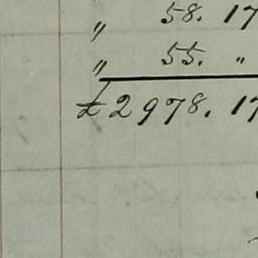 " 58. 17
" 55. "
£2978. 17